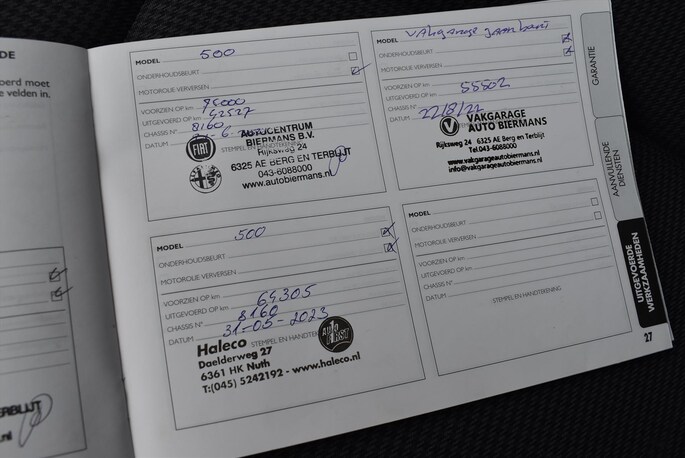 DE
oerd moet
e velden in.
MODEL 500
ONDERHOUDSBEURT
MOTOROLIE VERVERSEN
VOORZIEN OP km 75000
UITGEVOERD OP km 42527
CHASSIS N° 8160
DATUM
STEMPEL EN HANDTEKENING
FIAT
AUTOCENTRUM
BIERMANS B.V.
Rijksweg 24
6325 AE BERG EN TERBLIJT
043-6088000
www.autobiermans.nl
MODEL Vakgarage
ONDERHOUDSBEURT
MOTOROLIE VERVERSEN
VOORZIEN OP km
UITGEVOERD OP km 55502
CHASSIS N°
DATUM 22/8/22
VAKGARAGE
AUTO BIERMANS
Rijksweg 24 6325 AE Berg en Terblijt
Tel.043-6088000
www.vakgaragebiermans.nl
info@vakgaragebiermans.nl
MODEL 500
ONDERHOUDSBEURT
MOTOROLIE VERVERSEN
VOORZIEN OP km
UITGEVOERD OP km 64305
CHASSIS N° 8160
DATUM 31-05-2023
STEMPEL EN HANDTEKENING
Haleco
Daelderweg 27
6361 HK Nuth
T:(045) 5242192 - www.haleco.nl
MODEL
ONDERHOUDSBEURT
MOTOROLIE VERVERSEN
VOORZIEN OP km
UITGEVOERD OP km
CHASSIS N°
DATUM
STEMPEL EN HANDTEKENING
GARANTIE
AANVULLENDE
DIENSTEN
UITGEVOERDE
WERKZAAMHEDEN
27
ERBLIJT
.nl